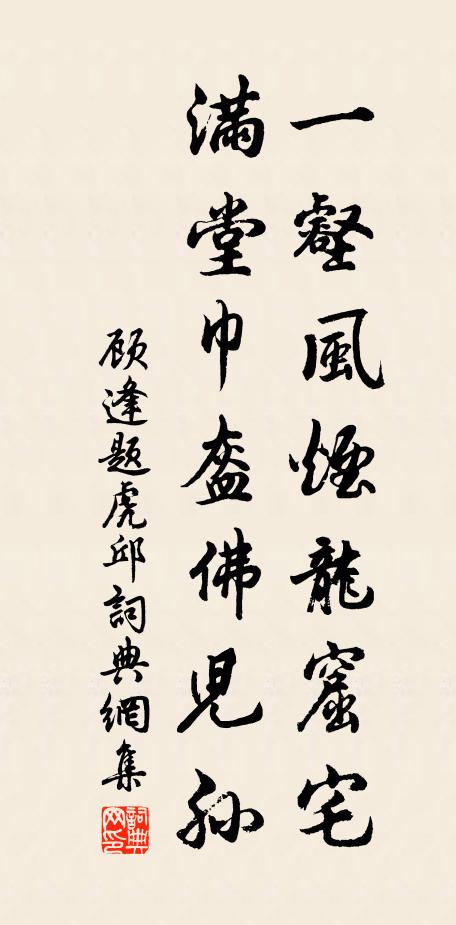 一壑風煙龍窟宅
滿堂巾盔佛兒孫
顾逢题虎邱詞典網集
詞典網印